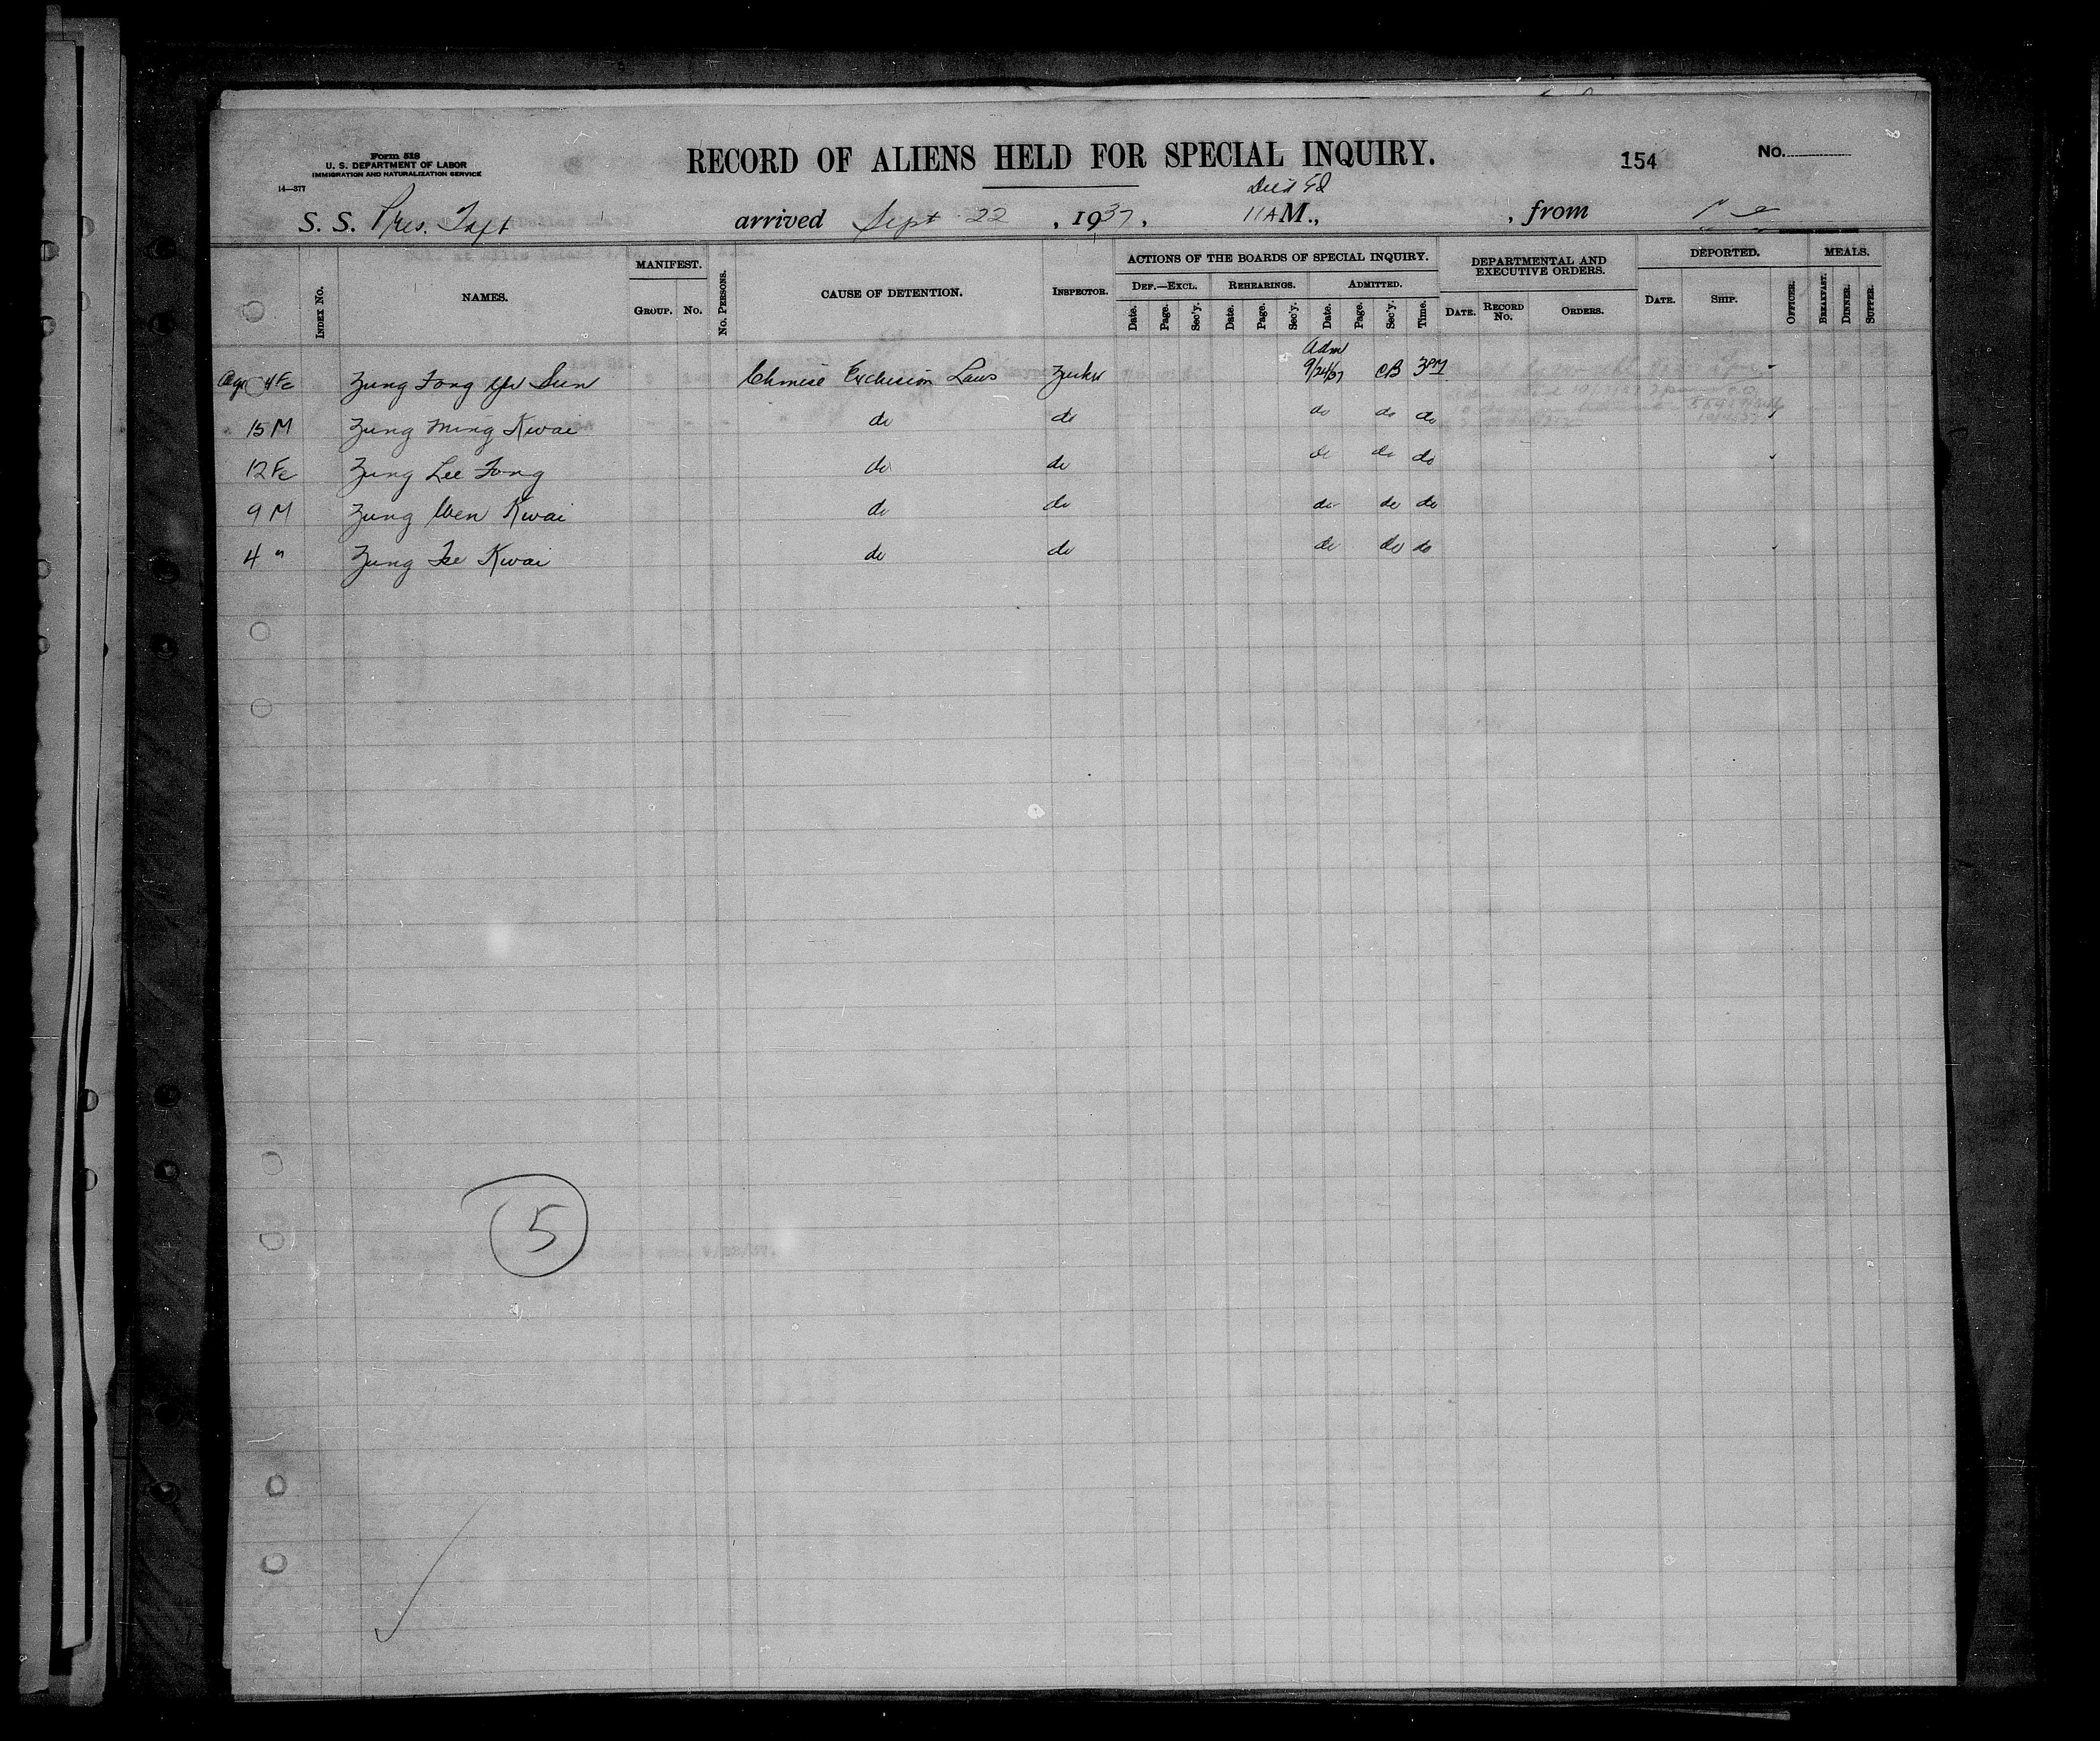 Form 518
U. S. DEPARTMENT OF LABOR
IMMIGRATION AND NATURALIZATION SERVICE
14—377
RECORD OF ALIENS HELD FOR SPECIAL INQUIRY.
154
No.
S. S. Pres. Taft arrived Sept 22, 1937, 11AM., , from
INDEX NO.
NAMES.
MANIFEST.
GROUP. NO.
NO. PERSONS.
CAUSE OF DETENTION.
INSPECTOR.
ACTIONS OF THE BOARDS OF SPECIAL INQUIRY.
DEF.—EXCL. REHEARINGS. ADMITTED.
Date. Page. Sec'y. Date. Page. Sec'y. Date. Page. Sec'y. Time.
DEPARTMENTAL AND EXECUTIVE ORDERS.
DATE. RECORD NO. ORDERS.
DEPORTED.
DATE. SHIP. OFFICER.
MEALS.
BREAKFAST. DINNER. SUPPER.
Adm
Zung Fong Yu Sun Chinese Exclusion Laws Zucker 9/24/37 CB 3PM
15 M Zung Ming Kwai do do do do do
12 Fe Zung Lee Fong do do do do do
9 M Zung Wen Kwai do do do do do
4 " Zung Tse Kwai do do do do do
5